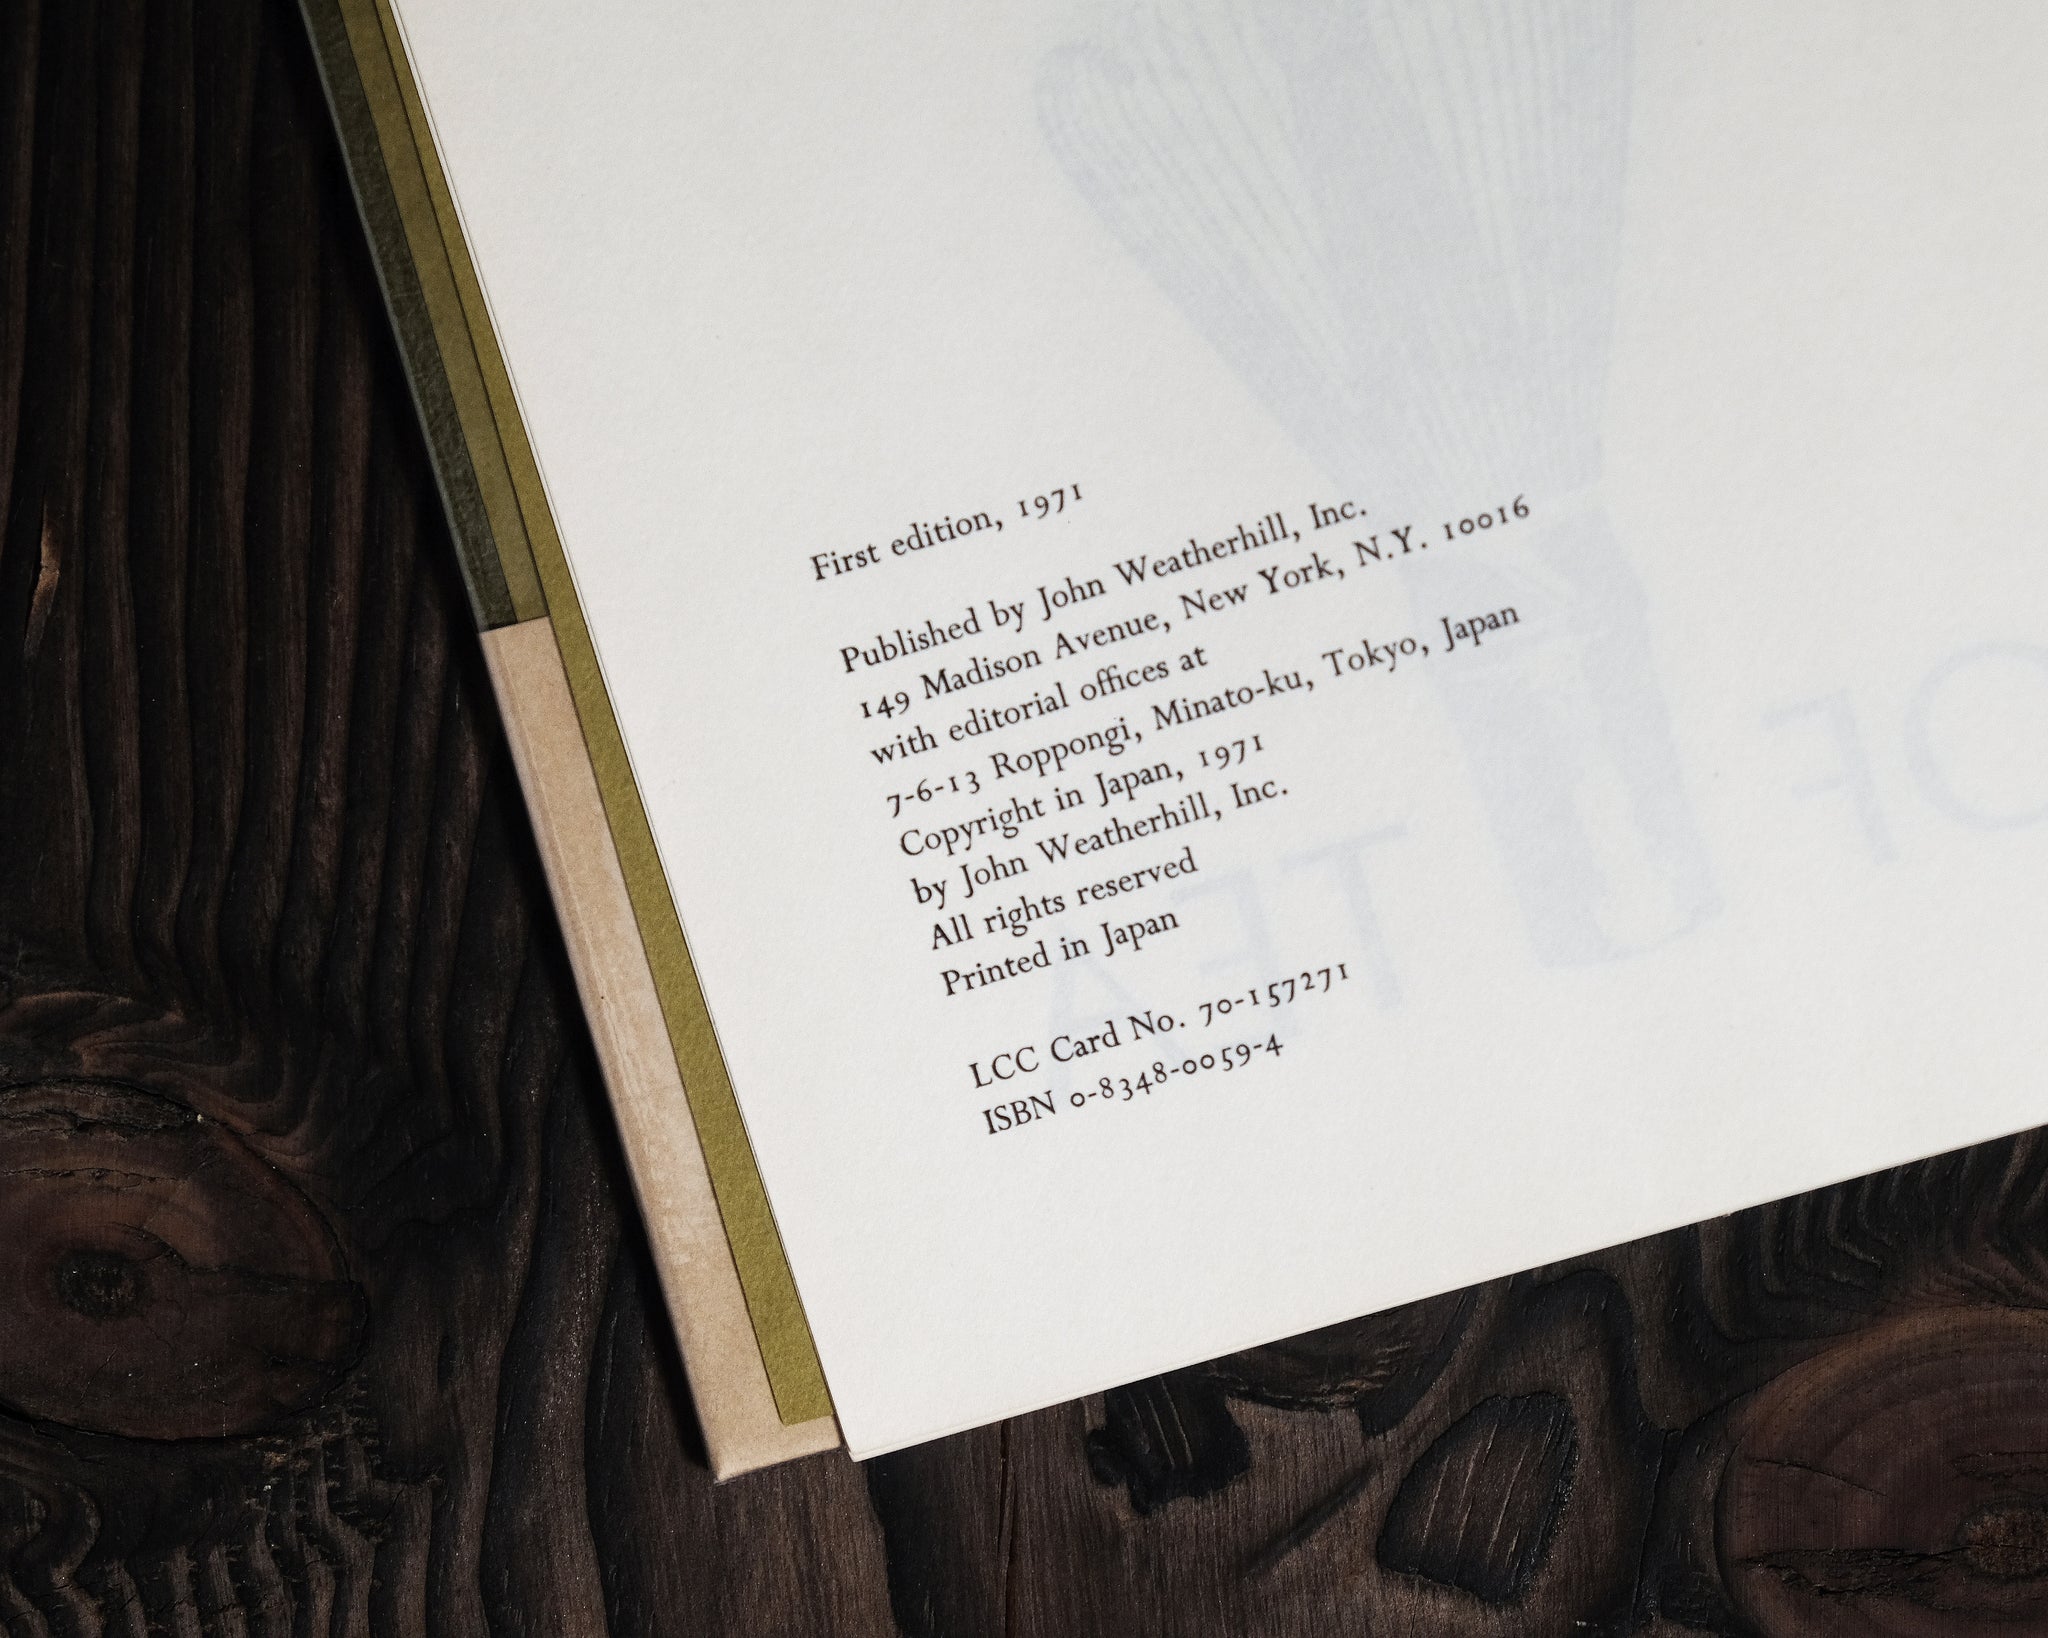 First edition, 1971
Published by John Weatherhill, Inc.
149 Madison Avenue, New York, N.Y. 10016
with editorial offices at
7-6-13 Roppongi, Minato-ku, Tokyo, Japan
Copyright in Japan, 1971
by John Weatherhill, Inc.
All rights reserved
Printed in Japan
LCC Card No. 70-157271
ISBN 0-8348-0059-4
OF
TEA